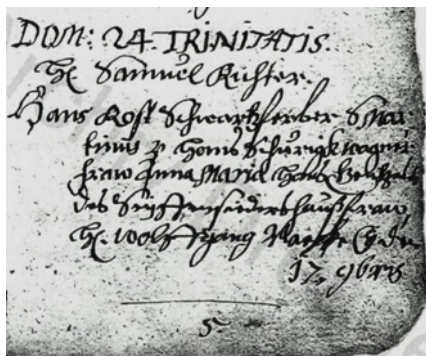 DOM: 24. TRINITATIS.
H. Samuel Richter.
Hans Rost Schwartzferber S. Mar-
tinus P. Hans Schurigk wagner
fraw Anna Maria Hans
des Seiffensieders haußfraw
H. Wolffgang
17. 9bris
5